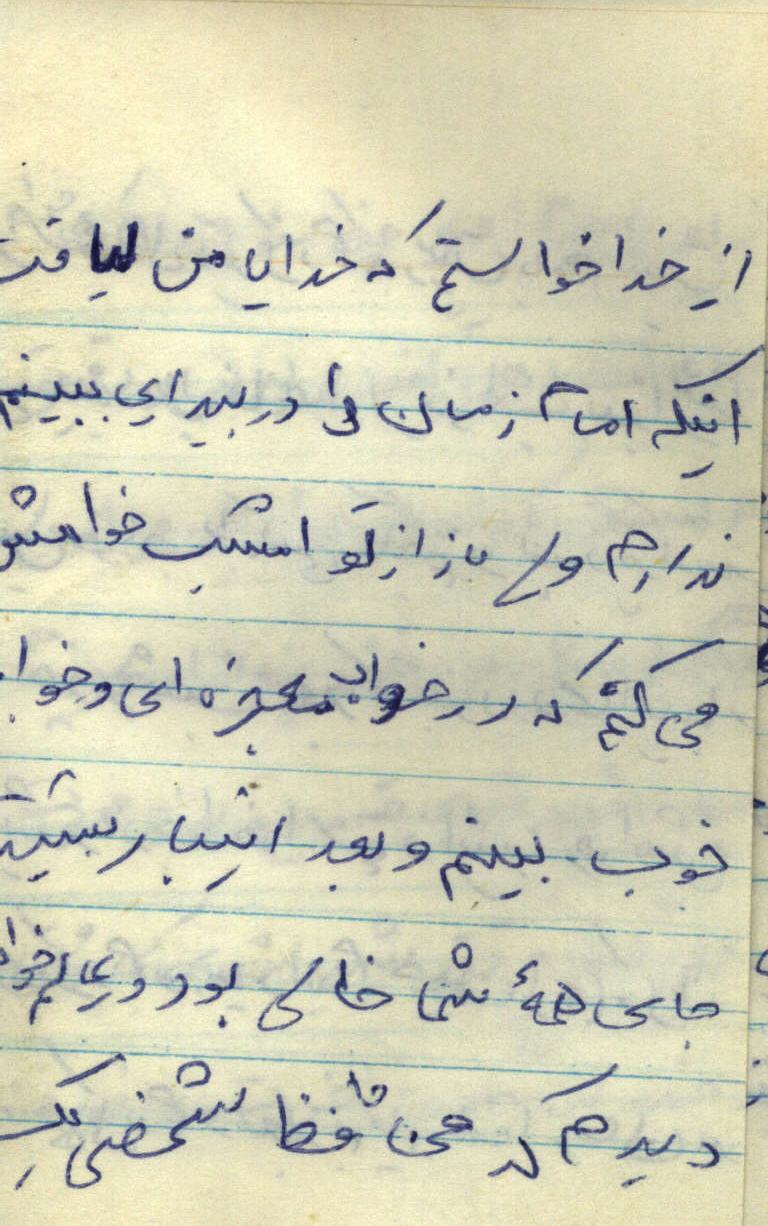 از خدا خواستم که خدایا من لیاقت
اینکه امام زمان را در بیداری ببینم
ندارم ولی باز از تو امشب خواهش
می کنم که در خواب معجزه ای و خواب
خوب ببینم و بعد این‌بار
جای همهٔ شما خالی بود در عالم خواب
دیدم که من محافظ شخصی یک